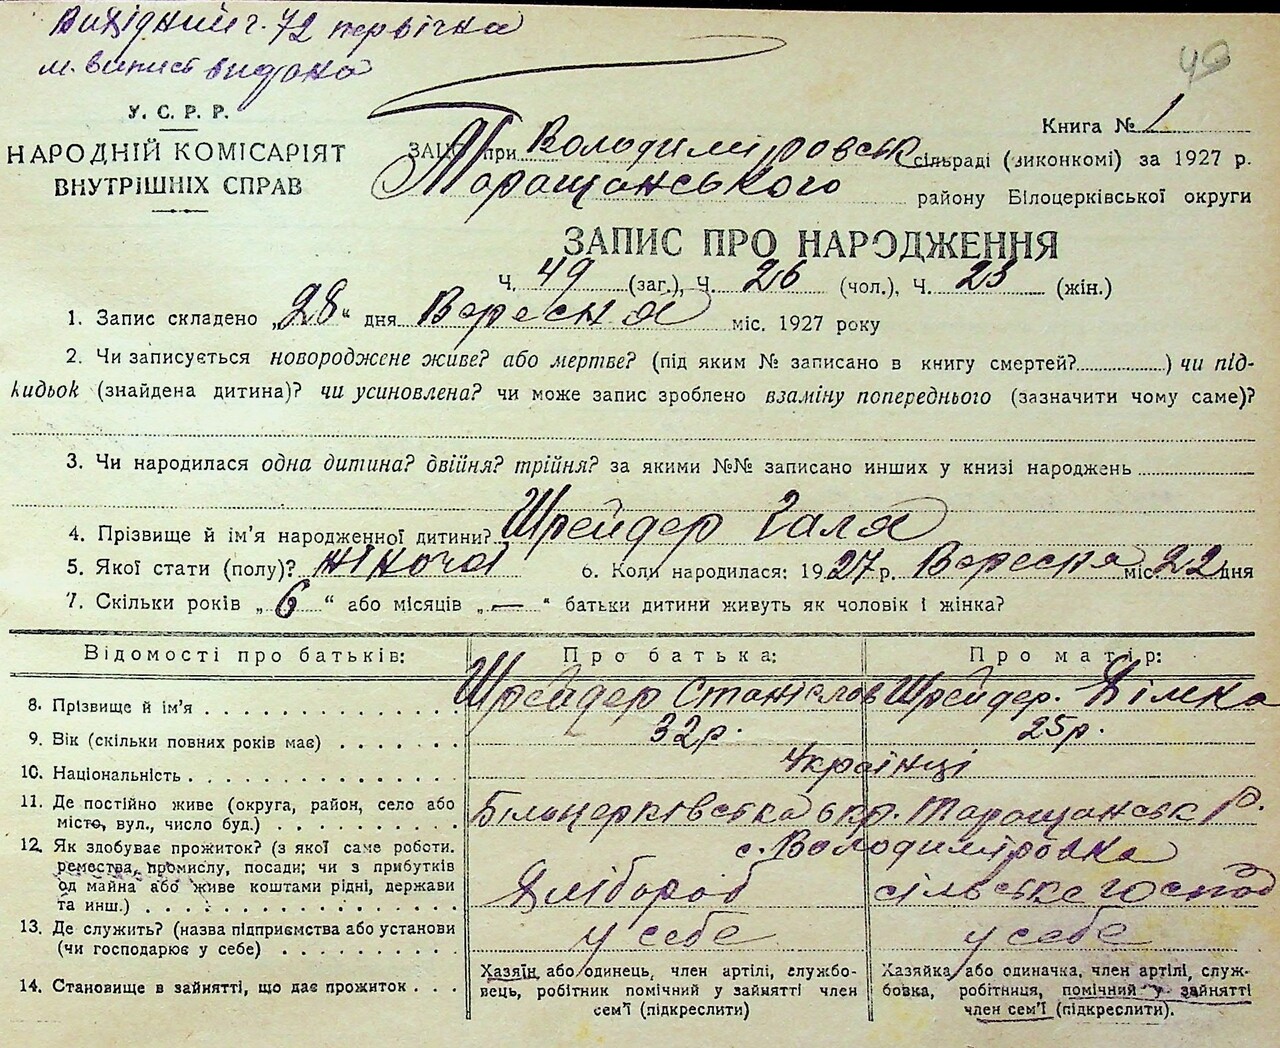 Вихідний ч. 72 первічна
м. випись видана
40
У. С. Р. Р.
НАРОДНІЙ КОМІСАРІЯТ
ВНУТРІШНІХ СПРАВ
Книга № 1
ЗАЦС при Володимировськ сільраді (виконкомі) за 1927 р.
Таращанського району Білоцерківської округи
ЗАПИС ПРО НАРОДЖЕННЯ
Ч. 49 (заг.), Ч. 26 (чол.), Ч. 23 (жін.)
1. Запис складено „28“ дня Вересня міс. 1927 року
2. Чи записується новороджене живе? або мертве? (під яким № записано в книгу смертей?) чи під-
кидьок (знайдена дитина)? чи усиновлена? чи може запис зроблено взаміну попереднього (зазначити чому саме)?
3. Чи народилася одна дитина? двійня? трійня? за якими №№ записано инших у книзі народжень
4. Прізвище й ім'я народженної дитини? Шрейдер Галя
5. Якої стати (полу)? жіночої 6. Коли народилася: 1927 р. Вересня міс. 22 дня
7. Скільки років „6“ або місяців „—“ батьки дитини живуть як чоловік і жінка?
Відомості про батьків: Про батька: Про матір:
8. Прізвище й ім'я Шрейдер Станіслав Шрейдер. Хімка
9. Вік (скільки повних років має) 32 р. 25 р.
10. Національність Українці
11. Де постійно живе (округа, район, село або Білоцерківська окр. Таращанськ р.
місто, вул., число буд.) с. Володиміровка
12. Як здобуває прожиток? (з якої саме роботи,
ремества, промислу, посади; чи з прибутків
од майна або живе коштами рідні, держави Хлібороб сільське господ
та инш.)
13. Де служить? (назва підприємства або установи у себе у себе
(чи господарює у себе)
14. Становище в зайнятті, що дає прожиток
Хазяїн або одинець, член артілі, службо-
вець, робітник помічний у зайнятті член
сем'ї (підкреслити)
Хазяйка або одиначка, член артілі, служ-
бовка, робітниця, помічний у зайнятті
член сем'ї (підкреслити).